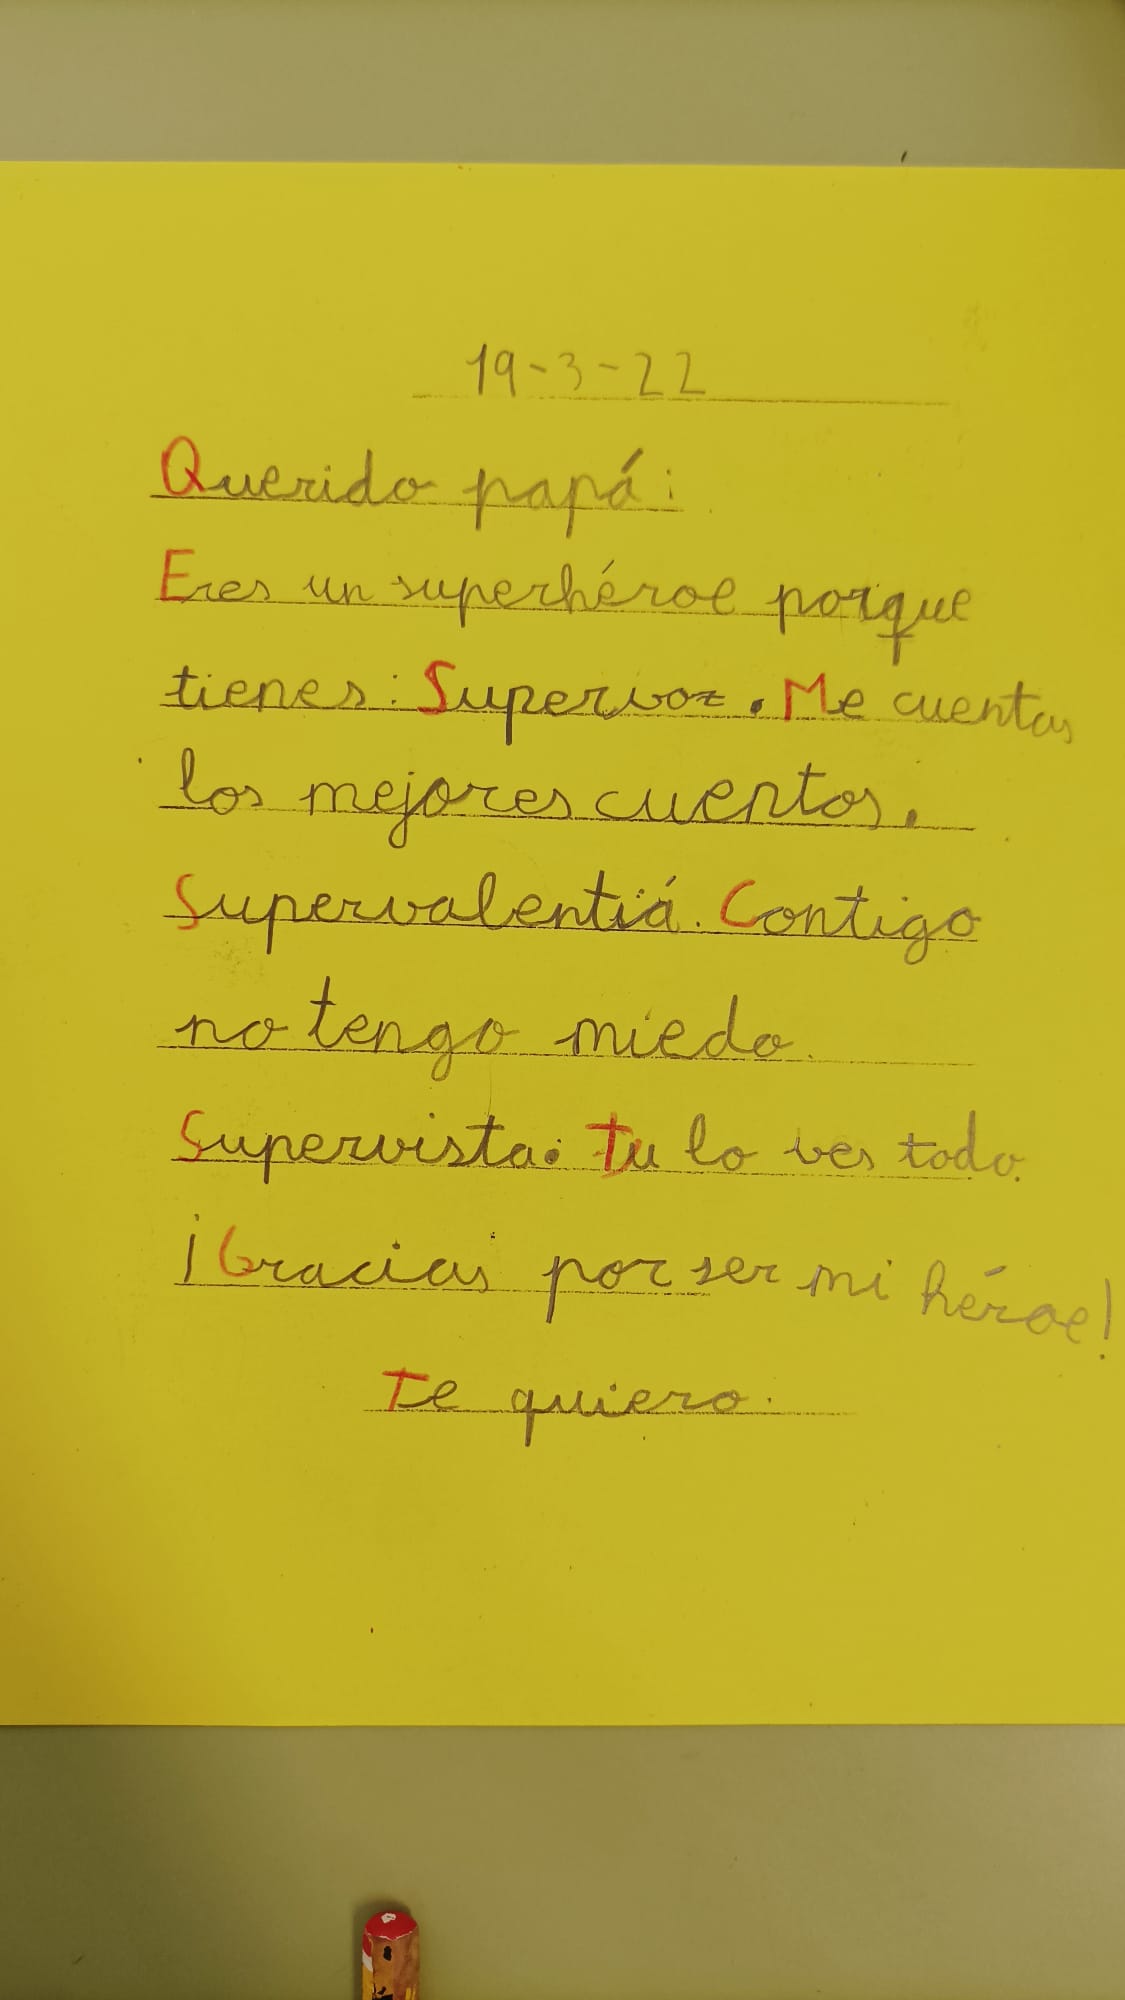 19-3-22
Querido papá:
Eres un superhéroe porque
tienes: Supervoz. Me cuentas
los mejores cuentos.
Supervalentiá. Contigo
no tengo miedo.
Supervista. Tu lo ves todo.
¡Gracias por ser mi héroe!
Te quiero.